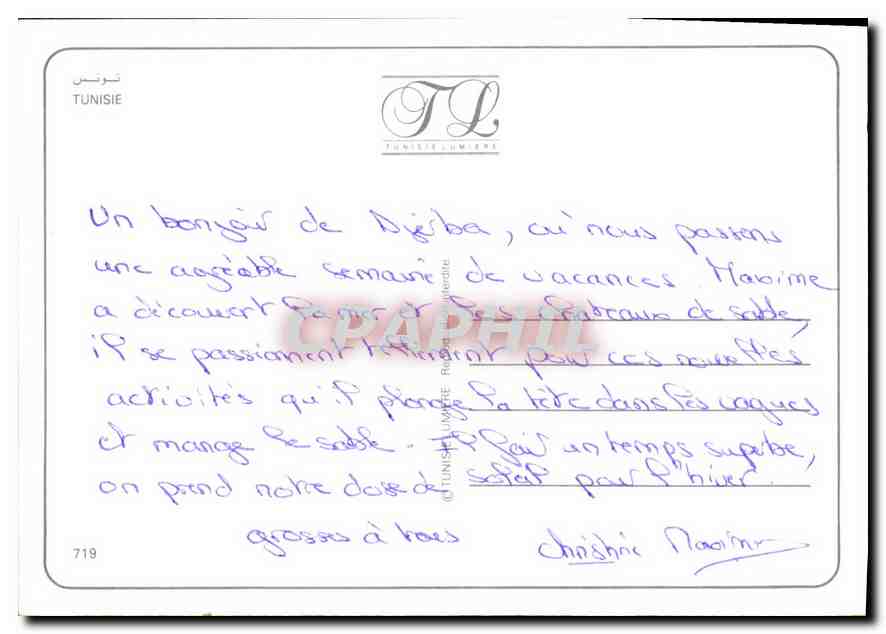 تونس
TUNISIE
TL
TUNISIE LUMIERE
Un bonjour de Djerba, où nous passons
une agréable semaine de vacances. Maxime
a découvert la mer et les chateaux de sable,
il se passionnent tellement pour ces nouvelles
activités qu'il plonge la tête dans les vagues
et mange le sable. Il fait un temps superbe,
on prend notre dose de soleil pour l'hiver.
grosses à tous
Christine Maxime
719
© TUNISIE LUMIERE Reproduction interdite
CPAPHIL